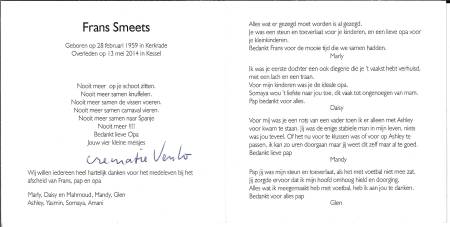 Frans Smeets
Geboren op 28 februari 1959 in Kerkrade
Overleden op 13 mei 2014 in Kessel
Nooit meer op je schoot zitten.
Nooit meer samen knuffelen.
Nooit meer samen de vissen voeren.
Nooit meer samen carnaval vieren.
Nooit meer samen naar Spanje
Nooit meer !!!!
Bedankt lieve Opa
Jouw vier kleine meisjes
crematie Venlo
Wij willen iedereen heel hartelijk danken voor het medeleven bij het
afscheid van Frans, pap en opa.
Marly, Daisy en Mahmoud, Mandy, Glen
Ashley, Yasmin, Somaya, Amani
Alles wat er gezegd moet worden is al gezegd.
Je was een steun en toeverlaat voor je kinderen, en een lieve opa voor
je kleinkinderen.
Bedankt Frans voor de mooie tijd die we samen hadden.
Marly
Ik was je eerste dochter één ook diegene die je 't vaakst hebt verhuisd,
met een lach en een traan.
Voor mijn kinderen was je de ideale opa.
Somaya wou 't liefste naar jou toe, dit vaak tot ongenoegen van mam.
Pap bedankt voor alles.
Daisy
Voor mij was je een rots van een vader toen ik er alleen met Ashley
voor kwam te staan. Jij was de enige stabiele man in mijn leven, niets
was jou teveel. Of het nu voor te klussen was of voor op Ashley te
passen, ik kan zo uren doorgaan maar jij weet dit zelf maar al te goed.
Bedankt lieve pap
Mandy
Pap jij was mijn steun en toeverlaat, als het met voetbal niet mee zat,
jij zorgde ervoor dat ik mijn hoofd omhoog hield en doorging.
Alles wat ik meegemaakt heb met voetbal, heb ik aan jou te danken.
Bedankt voor alles pap
Glen